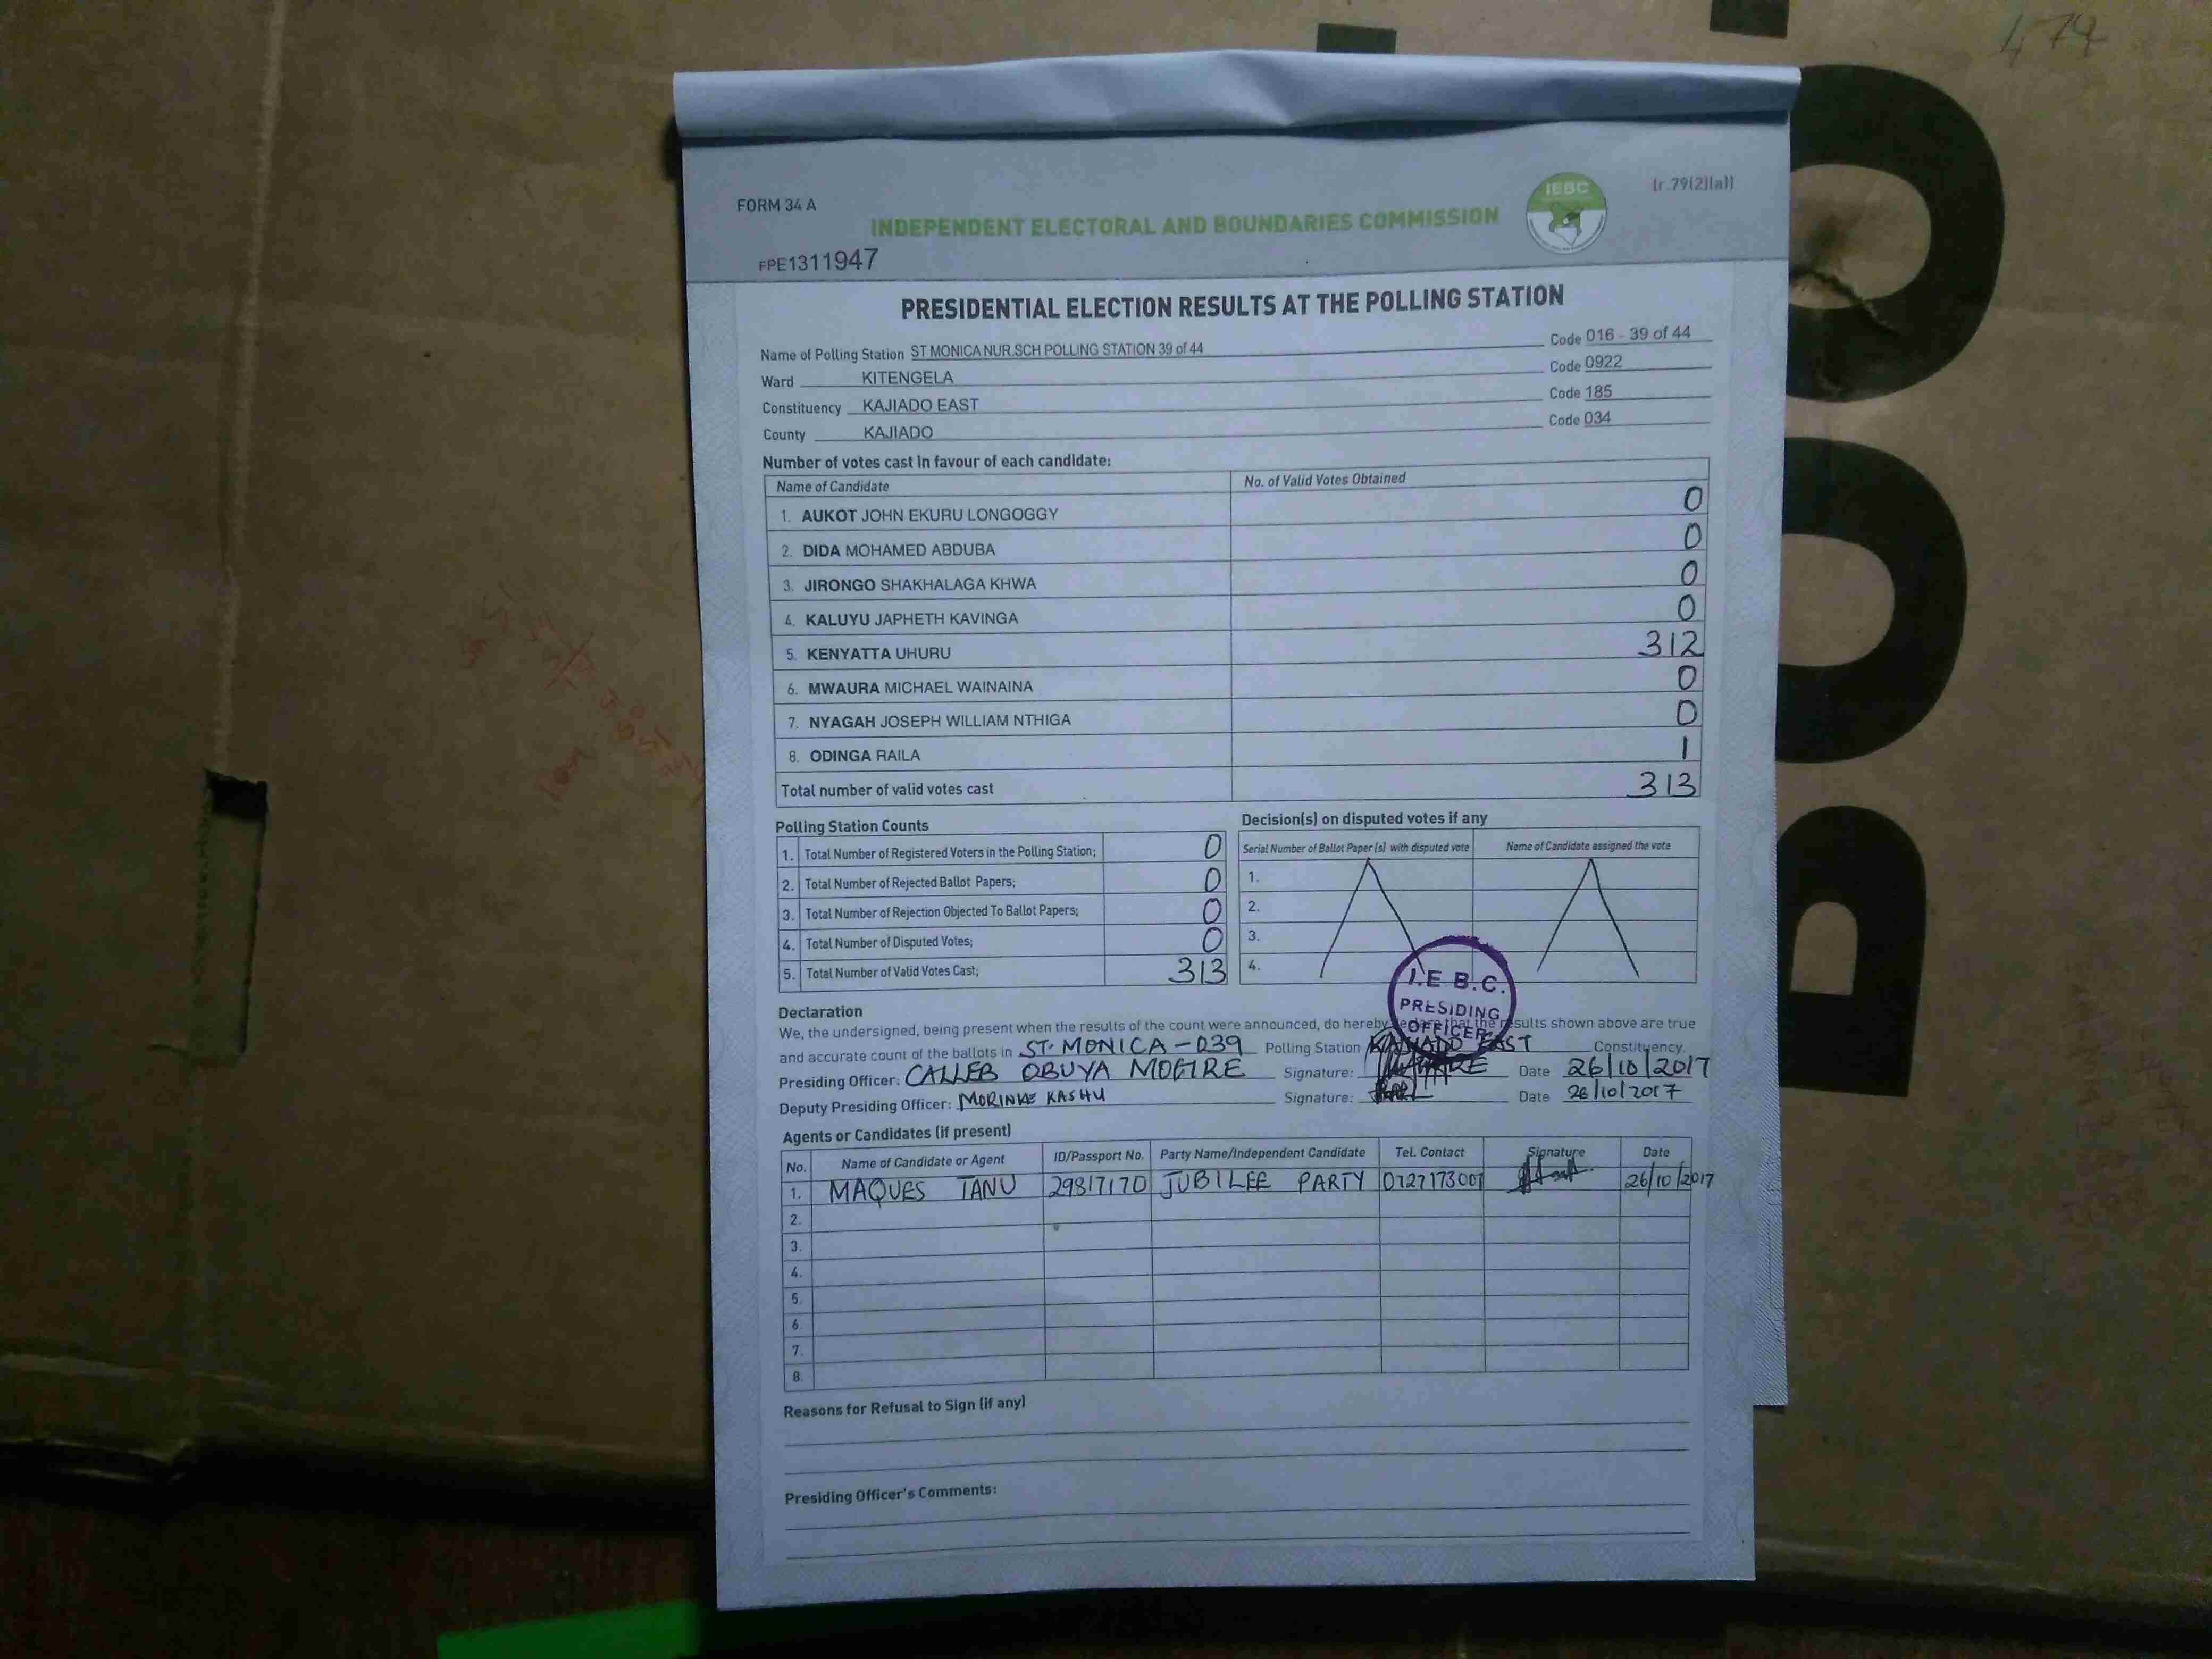 474
FORM 34 A
[r.79(2)(a)]
INDEPENDENT ELECTORAL AND BOUNDARIES COMMISSION
IEBC
FPE1311947
PRESIDENTIAL ELECTION RESULTS AT THE POLLING STATION
Name of Polling Station ST MONICA NUR.SCH POLLING STATION 39 of 44 Code 016 - 39 of 44
Ward KITENGELA Code 0922
Constituency KAJIADO EAST Code 185
County KAJIADO Code 034
Number of votes cast in favour of each candidate:
Name of Candidate No. of Valid Votes Obtained
1. AUKOT JOHN EKURU LONGOGGY 0
2. DIDA MOHAMED ABDUBA 0
3. JIRONGO SHAKHALAGA KHWA 0
4. KALUYU JAPHETH KAVINGA 0
5. KENYATTA UHURU 312
6. MWAURA MICHAEL WAINAINA 0
7. NYAGAH JOSEPH WILLIAM NTHIGA 0
8. ODINGA RAILA 1
Total number of valid votes cast 313
Polling Station Counts
1. Total Number of Registered Voters in the Polling Station; 0
2. Total Number of Rejected Ballot Papers; 0
3. Total Number of Rejection Objected To Ballot Papers; 0
4. Total Number of Disputed Votes; 0
5. Total Number of Valid Votes Cast; 313
Decision(s) on disputed votes if any
Serial Number of Ballot Paper (s) with disputed vote Name of Candidate assigned the vote
1.
2.
3.
4.
I.E.B.C.
PRESIDING
OFFICER
Declaration
We, the undersigned, being present when the results of the count were announced, do hereby declare that the results shown above are true
and accurate count of the ballots in ST. MONICA - 039 Polling Station KAJIADO EAST Constituency.
Presiding Officer: CALLEB OBUYA MOGIRE Signature: Date 26/10/2017
Deputy Presiding Officer: MORINKE KASHU Signature: Date 26/10/2017
Agents or Candidates (if present)
No. Name of Candidate or Agent ID/Passport No. Party Name/Independent Candidate Tel. Contact Signature Date
1. MAQUES TANU 29817170 JUBILEE PARTY 0727173007 26/10/2017
2.
3.
4.
5.
6.
7.
8.
Reasons for Refusal to Sign (if any)
Presiding Officer's Comments: